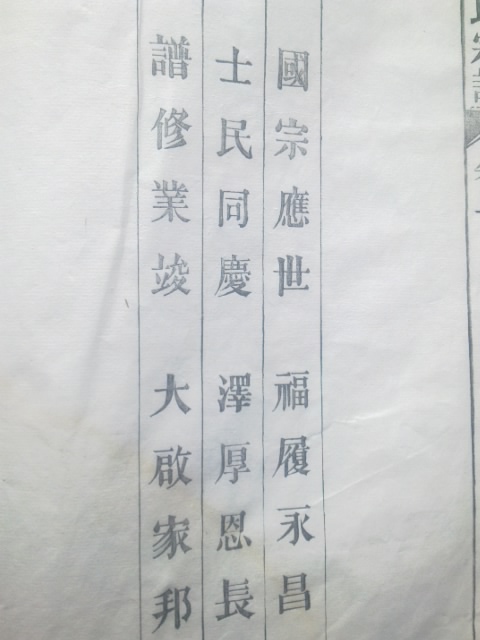 國宗應世 福履永昌
士民同慶 澤厚恩長
譜修業竣 大啟家邦